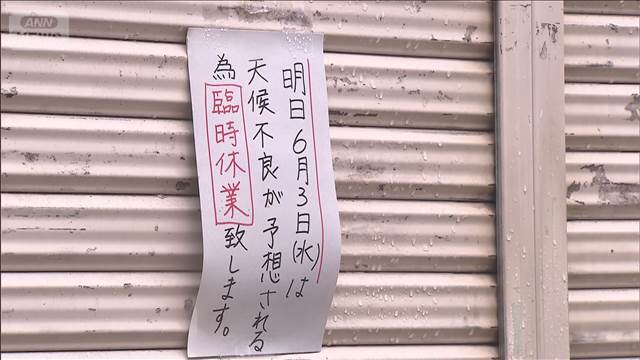 ANN
NEWS
明日6月3日(水)は
天候不良が予想される
為臨時休業致します。